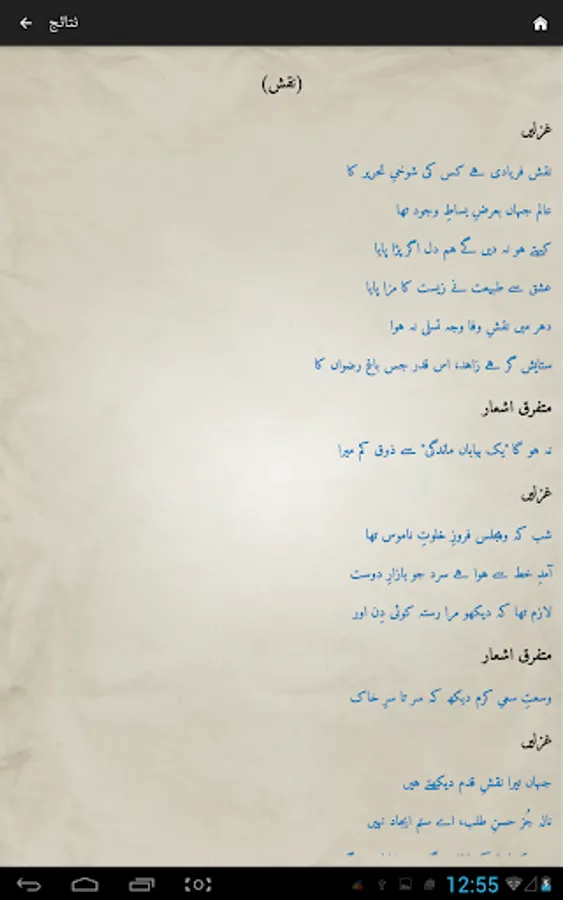 نتائج
(نقش)
غزلیں
نقش فریادی ہے کس کی شوخیِ تحریر کا
عالم جہاں بعرضِ بساطِ وجود تھا
کہتے ہو نہ دیں گے ہم دل اگر پڑا پایا
عشق سے طبیعت نے زیست کا مزا پایا
دھر میں نقشِ وفا وجہ تسلی نہ ہوا
ستایش گر ہے زاهد، اس قدر جس باغِ رضواں کا
متفرق اشعار
نہ ہو گا "یک بیاباں ماندگی" سے ذوق کم میرا
غزلیں
شب کہ وہ مجلس فروزِ خلوتِ ناموس تھا
آمدِ خط سے ہوا ہے سرد جو بازارِ دوست
لازم تھا کہ دیکھو مرا رستہ کوئی دِن اور
متفرق اشعار
وسعتِ سعیِ کرم دیکھ کہ سر تا سرِ خاک
غزلیں
جہاں تیرا نقشِ قدم دیکھتے ہیں
نالہ جُز حسنِ طلب، اے ستم ایجاد نہیں
12:55